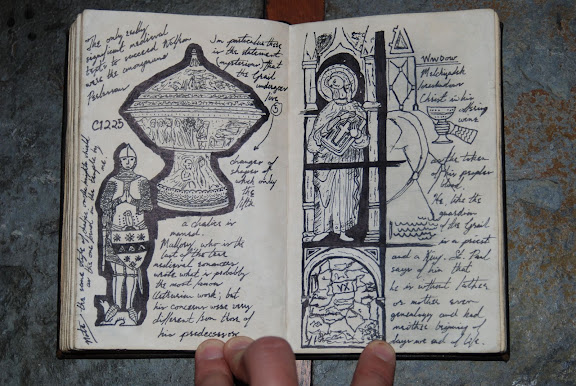 The only really
significant medieval
texts to succeed Wolfram
were the anonymous
Perlesvaus
C1225
In particular there
is the statement
(mysterious) that
the Grail
undergoes
five
5
changes of
shapes of
which only
the
little
a chalice is
named.
Mallory, who is the
last of the true
medieval romancers
wrote what is probably
the most famous
Arthurian work; but
his concerns were very
different from those of
his predecessors
Note, the same style of
as the one found in the temple by
me.
Window
Melchizedek
Christ in his
offering
wine
as the token
of his
blood.
He, like the
guardian
of the Grail
is a priest
and a King. St Paul
says of him that
he is without father
or mother even
genealogy and had
neither beginning of
days nor end of life.